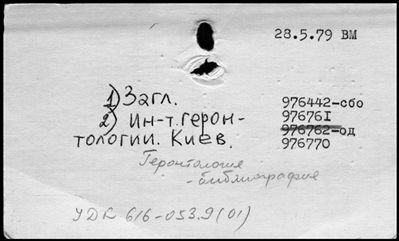 28.5.79 ВМ
1) Загл.
2) Ин-т. герон-
тологии. Киев.
976442-сбо
97676I
976762-од
976770
Геронтология
- библиография
УДК 616-053.9(01)